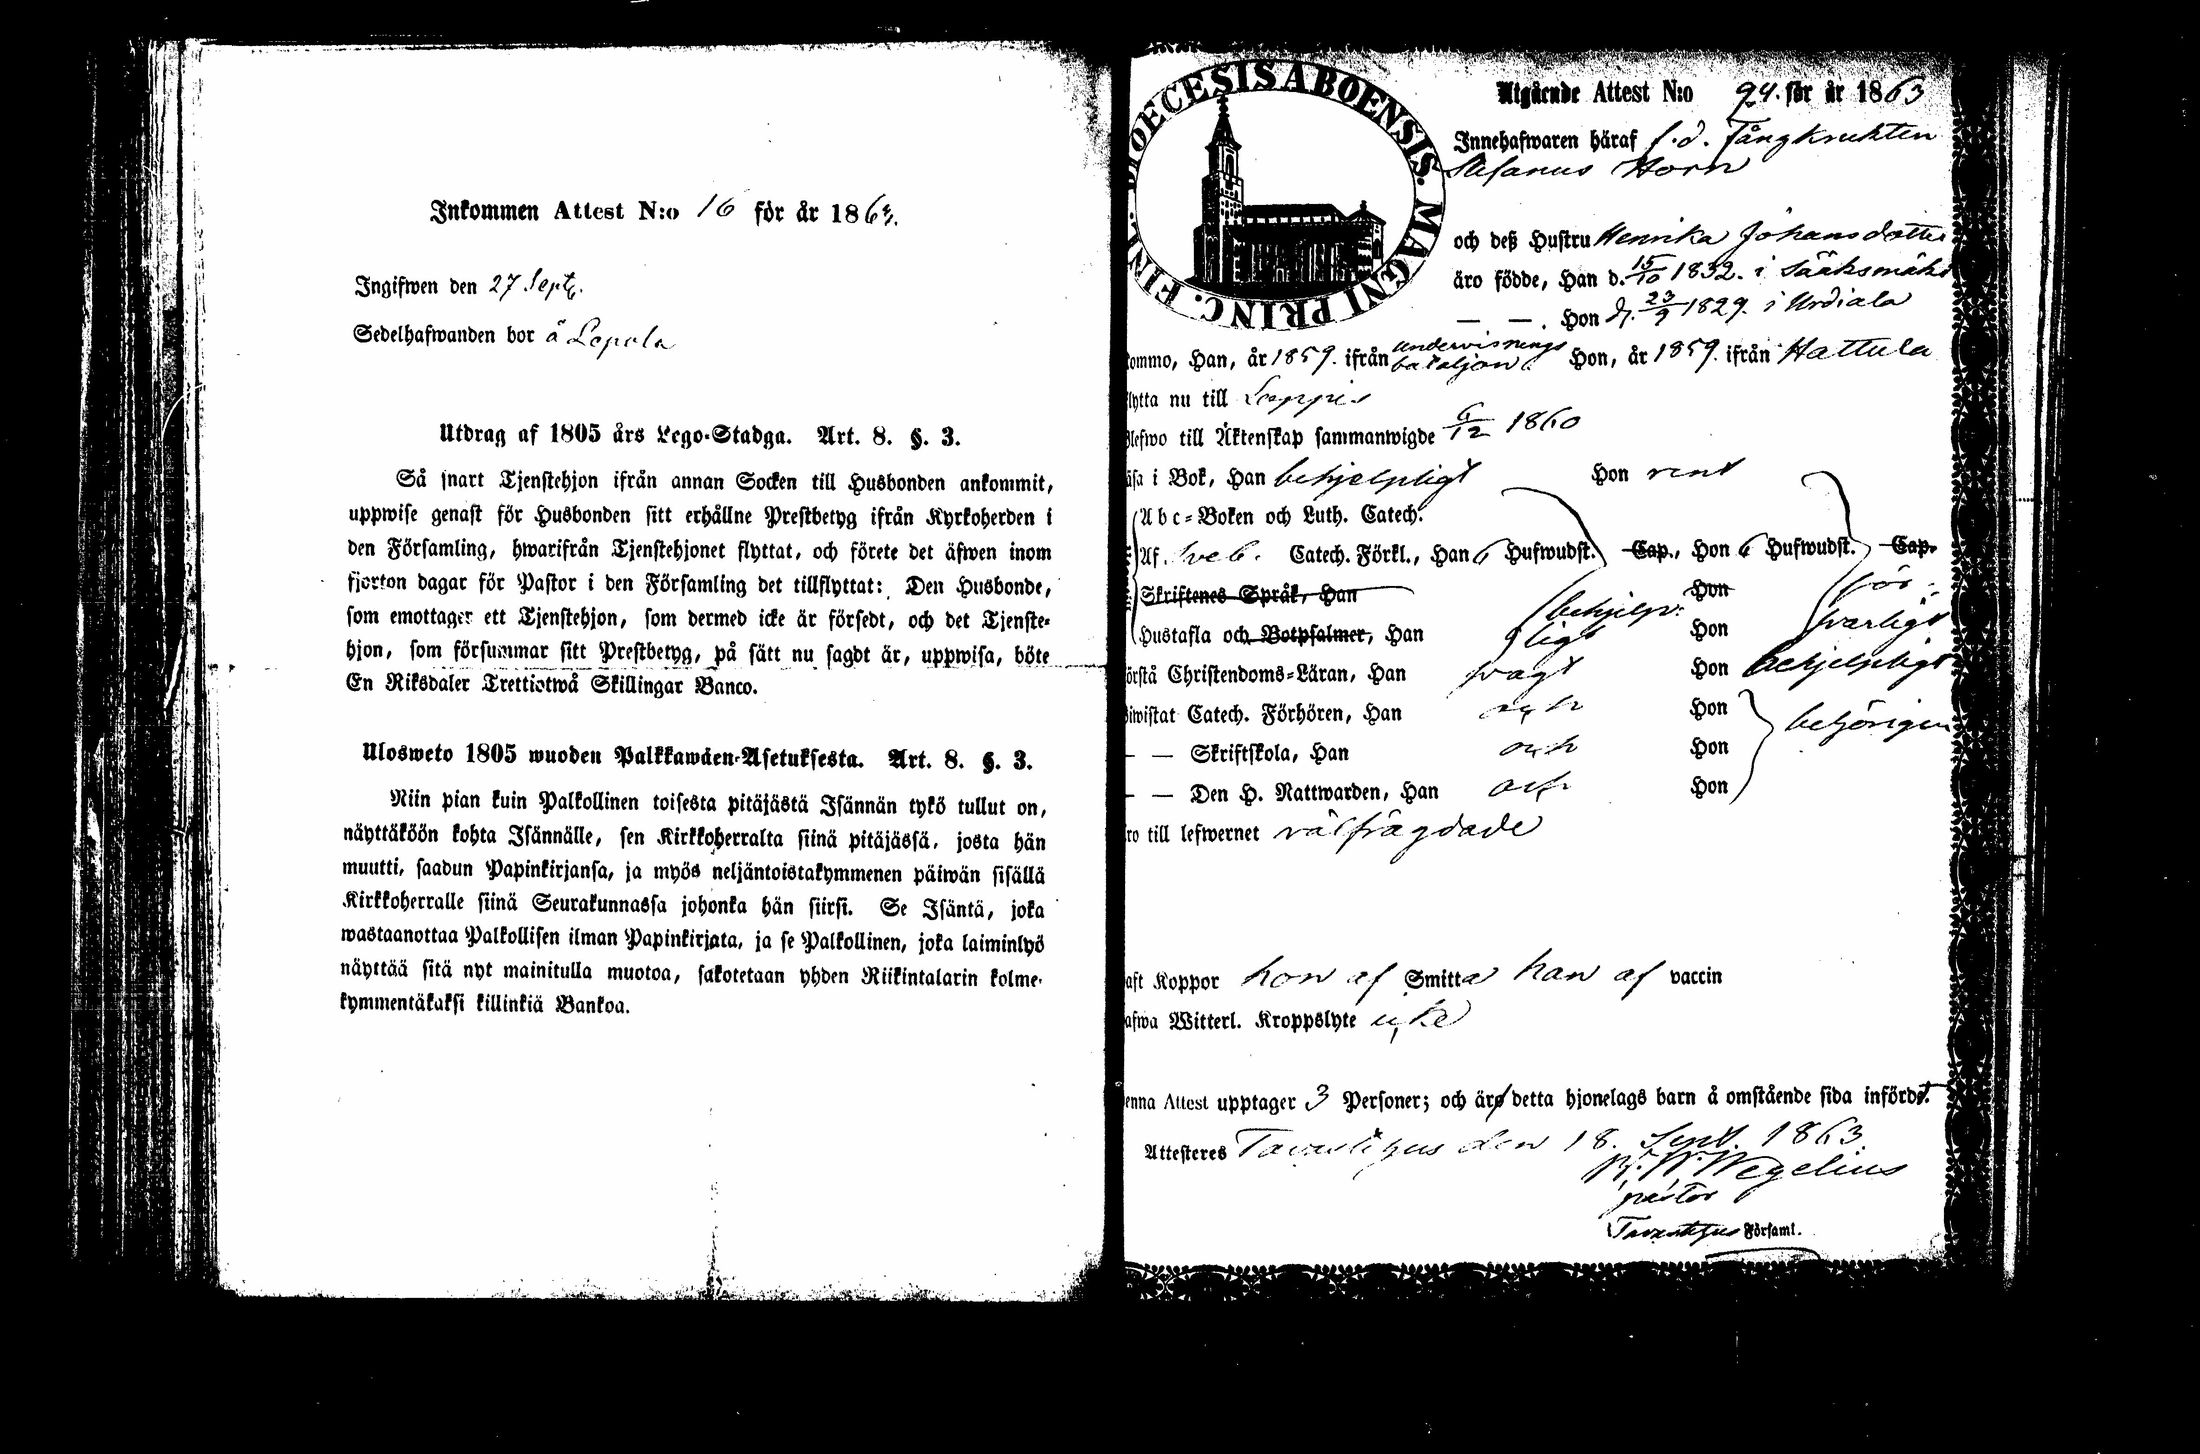 Inkommen Attest N:o 16 för år 1863.
Ingifwen den 27 Sept.
Sedelhafwanden bor å Lepola
Utdrag af 1805 års Lego-Stadga. Art. 8. §. 3.
Så snart Tjenstehjon ifrån annan Socken till Husbonden ankommit,
uppwise genast för Husbonden sitt erhållne Prestbetyg ifrån Kyrkoherden i
den Församling, hwarifrån Tjenstehjonet flyttat, och förete det äfwen inom
fjorton dagar för Pastor i den Församling det tillflyttat: Den Husbonde,
som emottager ett Tjenstehjon, som dermed icke är försedt, och det Tjenste-
hjon, som försummar sitt Prestbetyg, på sätt nu sagdt är, uppwisa, böte
En Riksdaler Trettiotwå Skillingar Banco.
Ulosweto 1805 wuoden Palkkawäen-Asetuksesta. Art. 8. §. 3.
Niin pian kuin Palkollinen toisesta pitäjästä Isännän tykö tullut on,
näyttäköön kohta Isännälle, sen Kirkkoherralta siinä pitäjässä, josta hän
muutti, saadun Papinkirjansa, ja myös neljäntoistakymmenen päiwän sisällä
Kirkkoherralle siinä Seurakunnassa johonka hän siirsi. Se Isäntä, joka
wastaanottaa Palkollisen ilman Papinkirjata, ja se Palkollinen, joka laiminlyö
näyttää sitä nyt mainitulla muotoa, sakotetaan yhden Riikintalarin kolme-
kymmentäkaksi killinkiä Bankoa.
DIOECESIS ABOENSIS. MAGNI PRINC. FINL.
Utgående Attest N:o 94. för år 1863
Innehafwaren häraf f.d. Fångknekten
Stefanus Horn
och deß Hustru Henrika Johansdotter
äro födde, Han d. 15/10 1832. i Sääksmäki
— —. Hon d. 23/9 1829. i Urdiala
kommo, Han, år 1859. ifrån underwisnings bataljon. Hon, år 1859. ifrån Hattula
flytta nu till Loppis
blefwo till Äktenskap sammanwigde 6/12 1860
läsa i Bok, Han behjelpligt Hon rent
Abc-Boken och Luth. Catech.
Af Sveb. Catech. Förkl., Han 6 Hufwudst. Cap., Hon 6 Hufwudst. Cap.
Skriftenes Språk, Han Hon
Hustafla och Botpsalmer, Han behjelpligt Hon förswarligt
förstå Christendoms-Läran, Han svagt Hon behjelpligt
biwistat Catech. Förhören, Han och Hon behörigen
— — Skriftskola, Han och Hon
— — Den H. Nattwarden, Han och Hon
äro till lefwernet välfrägdade
haft Koppor hon af Smitta han af vaccin
hafwa Witterl. Kroppslyte icke
Denna Attest upptager 3 Personer; och äro detta hjonelags barn å omstående sida infördt.
Attesteres Tavastehus den 18. Sept. 1863
Wegelius
pastor
Tavastehus Församl.